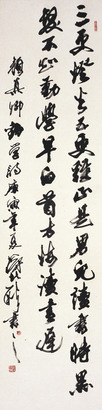 三更燈火五更雞正是男兒讀書時黑
髮不知勤學早白首方悔讀書遲
顏真卿勸學詩庚寅年夏